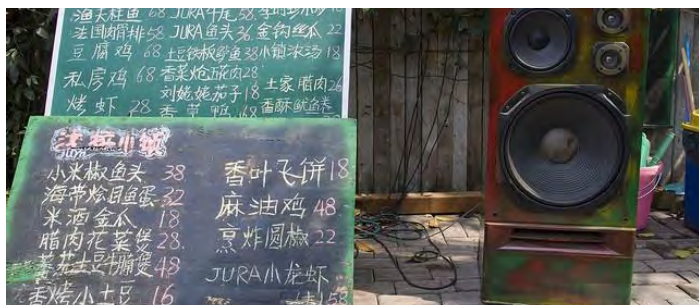 渔夫桂鱼 68 JURA牛尾 58
法国焗排 58 JURA鱼头 36 金钩丝瓜 22
豆腐鸡 68 土豆铁板鱼 38 小锅浓汤 18
香菜炝五花肉 28
私房鸡 68 刘姥姥茄子 18 土家腊肉 26
烤虾 28 香草鸭 68 香酥鱿鱼卷
小米椒鱼头 38
海带烩目鱼蛋 32
米酒金瓜 18
腊肉花菜煲 28
蕃茄土豆牛腩煲 48
香烤小土豆 16
香叶飞饼 18
麻油鸡 48
烹炸圆椒 22
JURA小龙虾
58